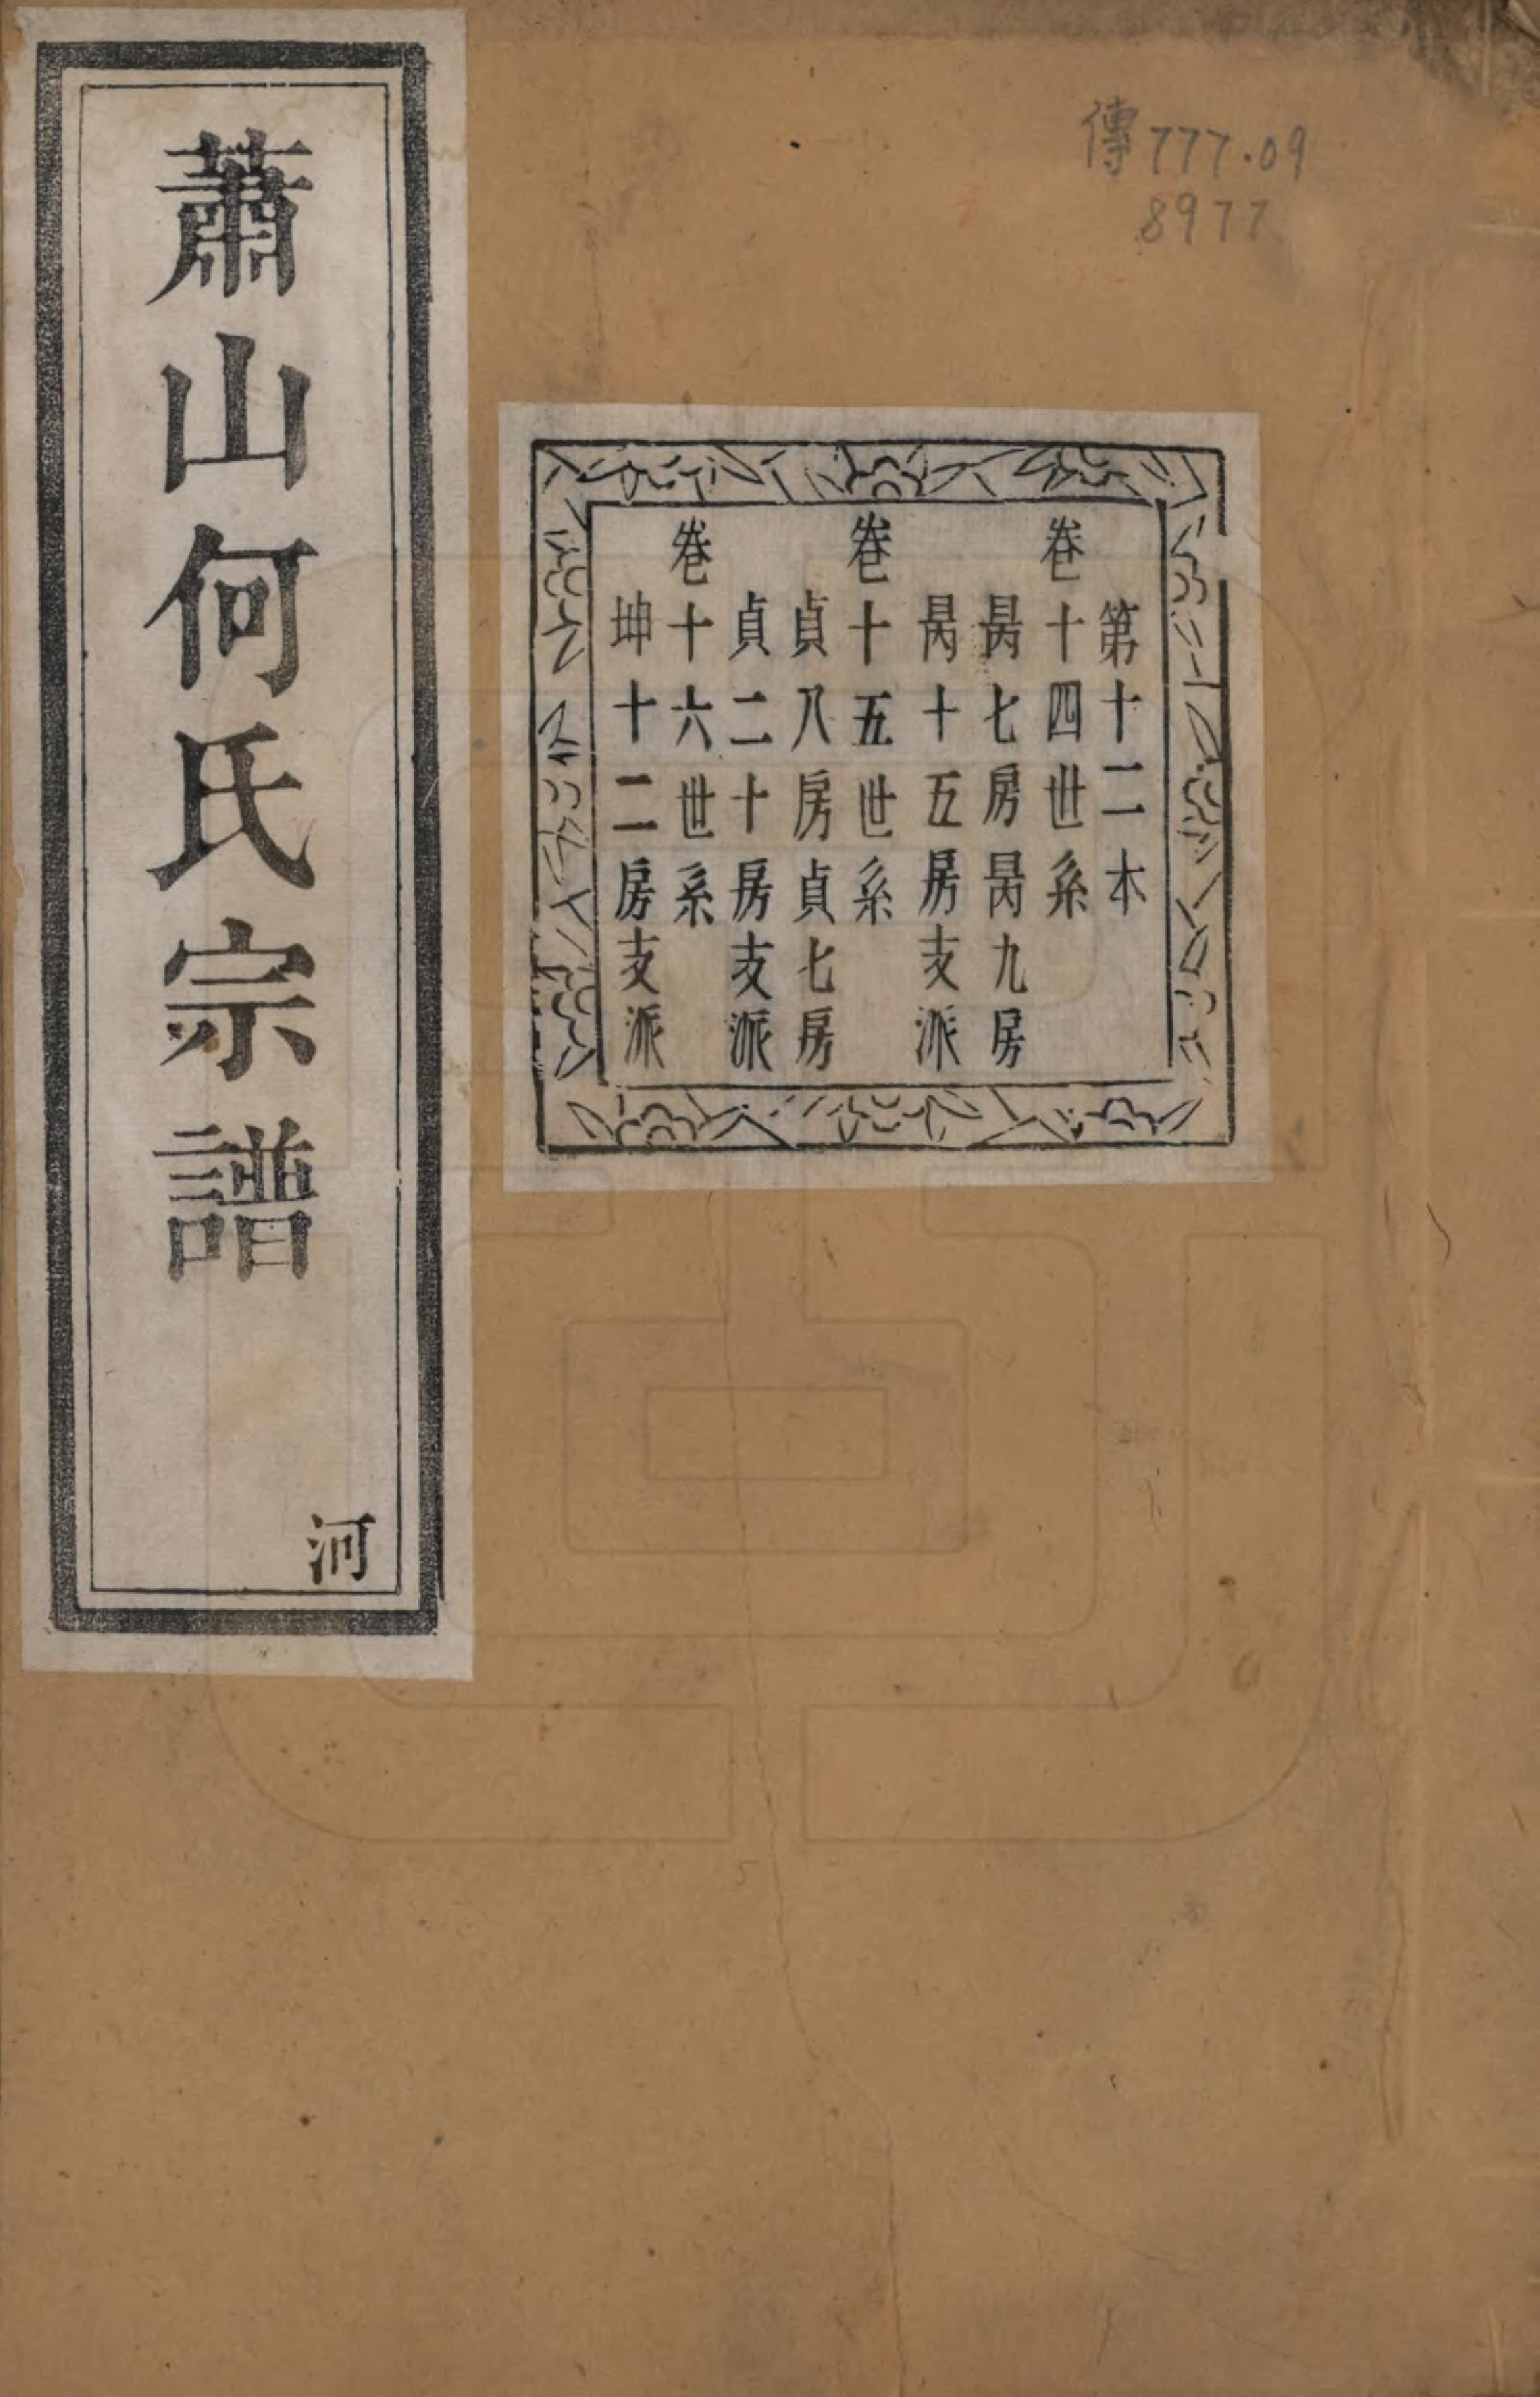 傳777.09
8977
第十二本
卷十四世系
昺七房昺九房
昺十五房支派
卷十五世系
貞八房貞七房
貞二十房支派
卷十六世系
坤十二房支派
蕭山何氏宗譜
河